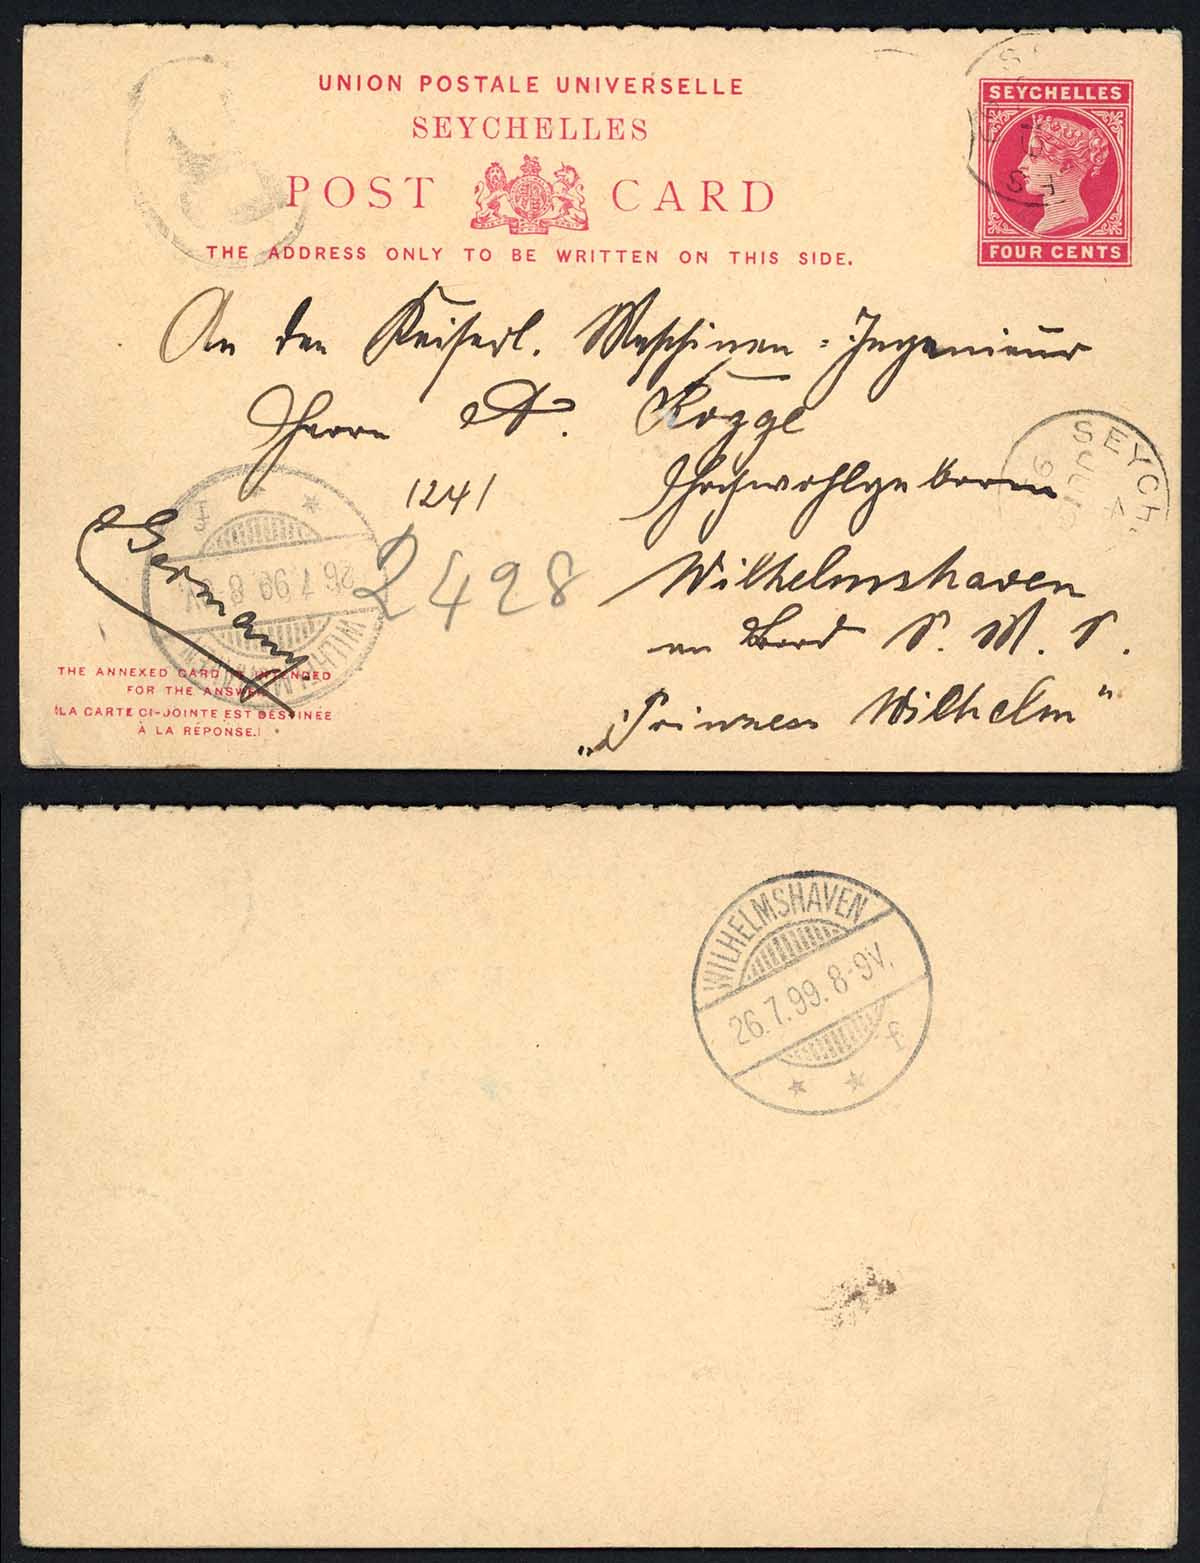 UNION POSTALE UNIVERSELLE
SEYCHELLES
POST CARD
THE ADDRESS ONLY TO BE WRITTEN ON THIS SIDE.
SEYCHELLES
FOUR CENTS
An den Keiserl. Maschinen-Ingenieur
Herrn A. Rogge
Hochwohlgeboren
1241
2498
Wilhelmshaven
an Bord S. M. S.
„Prinzess Wilhelm“
Germany
SEYCH
WILHELMSHAVEN
26.7.99. 8-9V.
* * f
THE ANNEXED CARD IS INTENDED
FOR THE ANSWER
(LA CARTE CI-JOINTE EST DESTINÉE
À LA RÉPONSE.)
WILHELMSHAVEN
26.7.99. 8-9V.
* * f